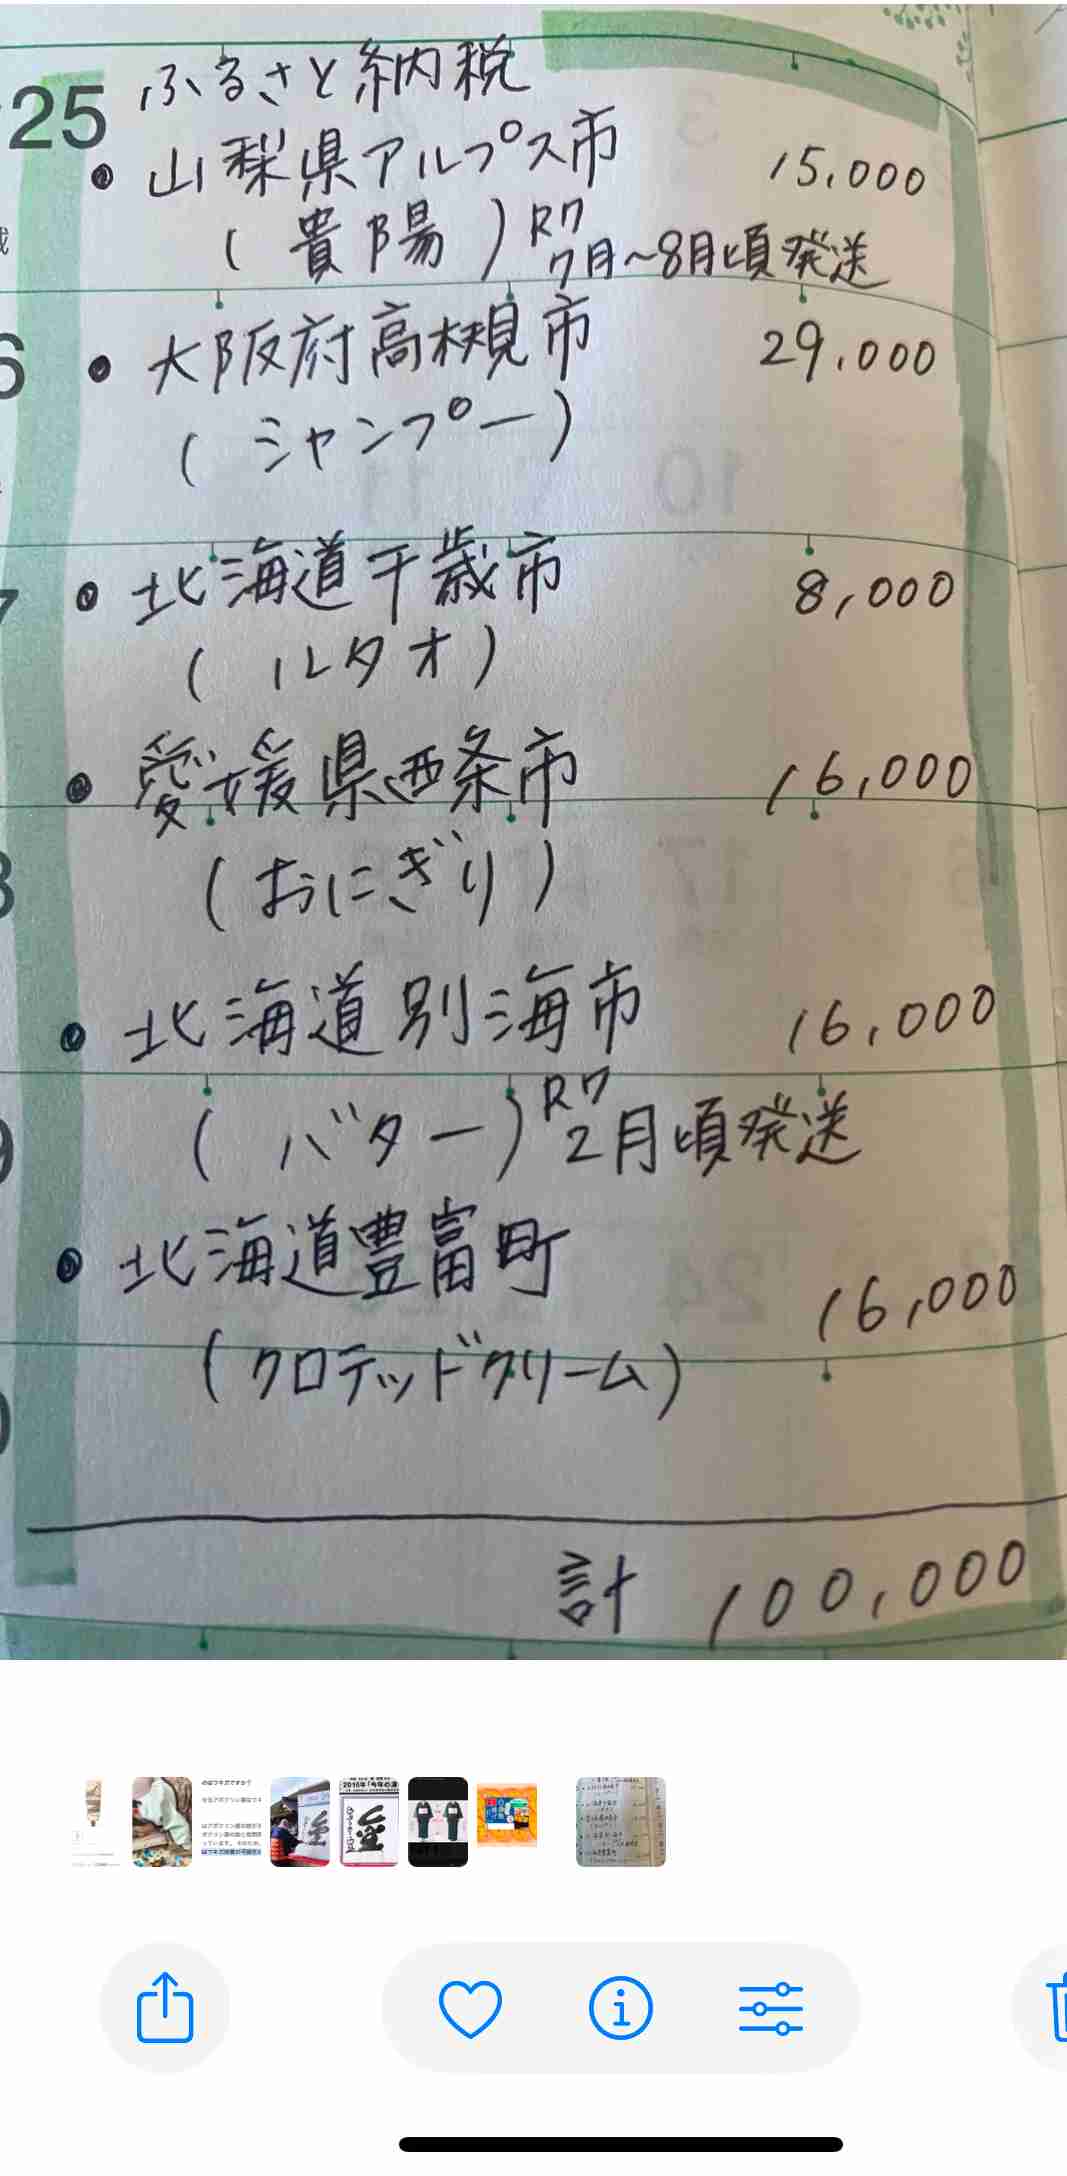 25
ふるさと納税
山梨県アルプス市 15,000
(貴陽) R7 7月~8月頃発送
大阪府高槻市 29,000
(シャンプー)
北海道千歳市 8,000
(ルタオ)
愛媛県西条市 16,000
(おにぎり)
北海道別海市 16,000
(バター) R7 2月頃発送
北海道豊富町 16,000
(クロテッドクリーム)
計 100,000